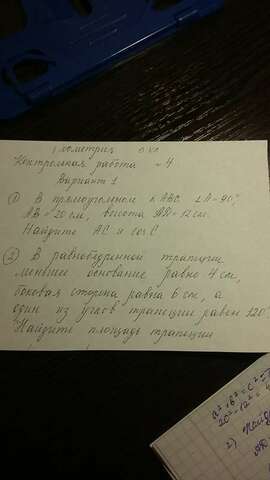 Геометрия 8 кл
Контрольная работа №4
Вариант 1
① В прямоугольном △ABC ∠A=90°,
AB=20 см, высота AD=12 см.
Найдите AC и cos C
② В равнобедренной трапеции
меньшее основание равно 4 см,
боковая сторона равна 6 см, а
один из углов трапеции равен 120°
Найдите площадь трапеции
a²+b²=c²
20²-12²=
2) Найд